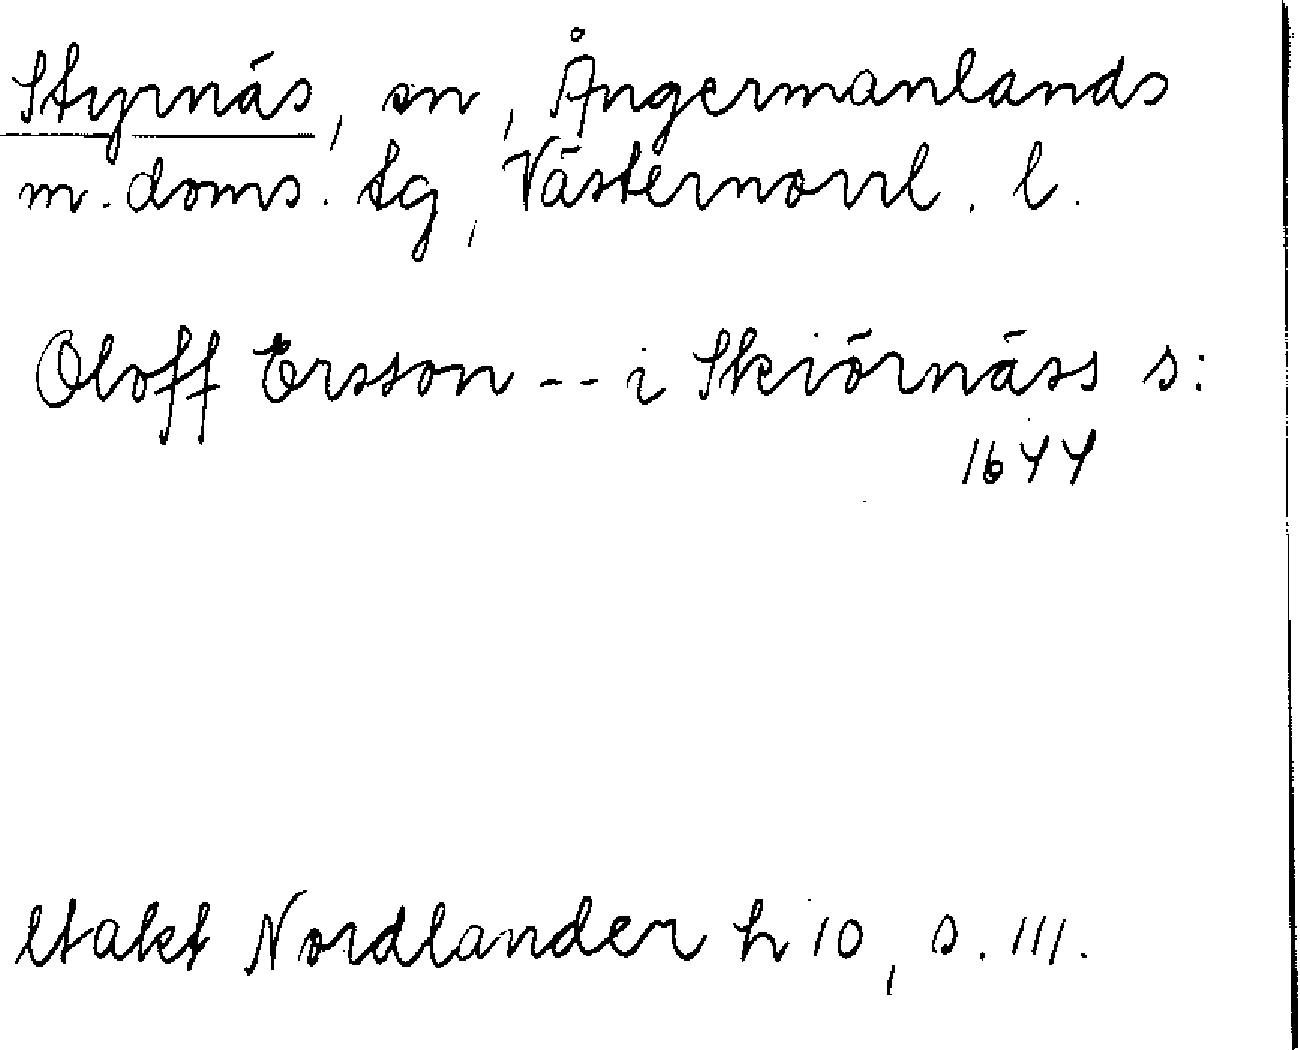 Styrnäs, sn, Ångermanlands
m. doms. tg, Västernorrl. l.
Oloff Ersson -- i Skiörnäss s:
1644
Utakt Nordlander h 10, s. 111.